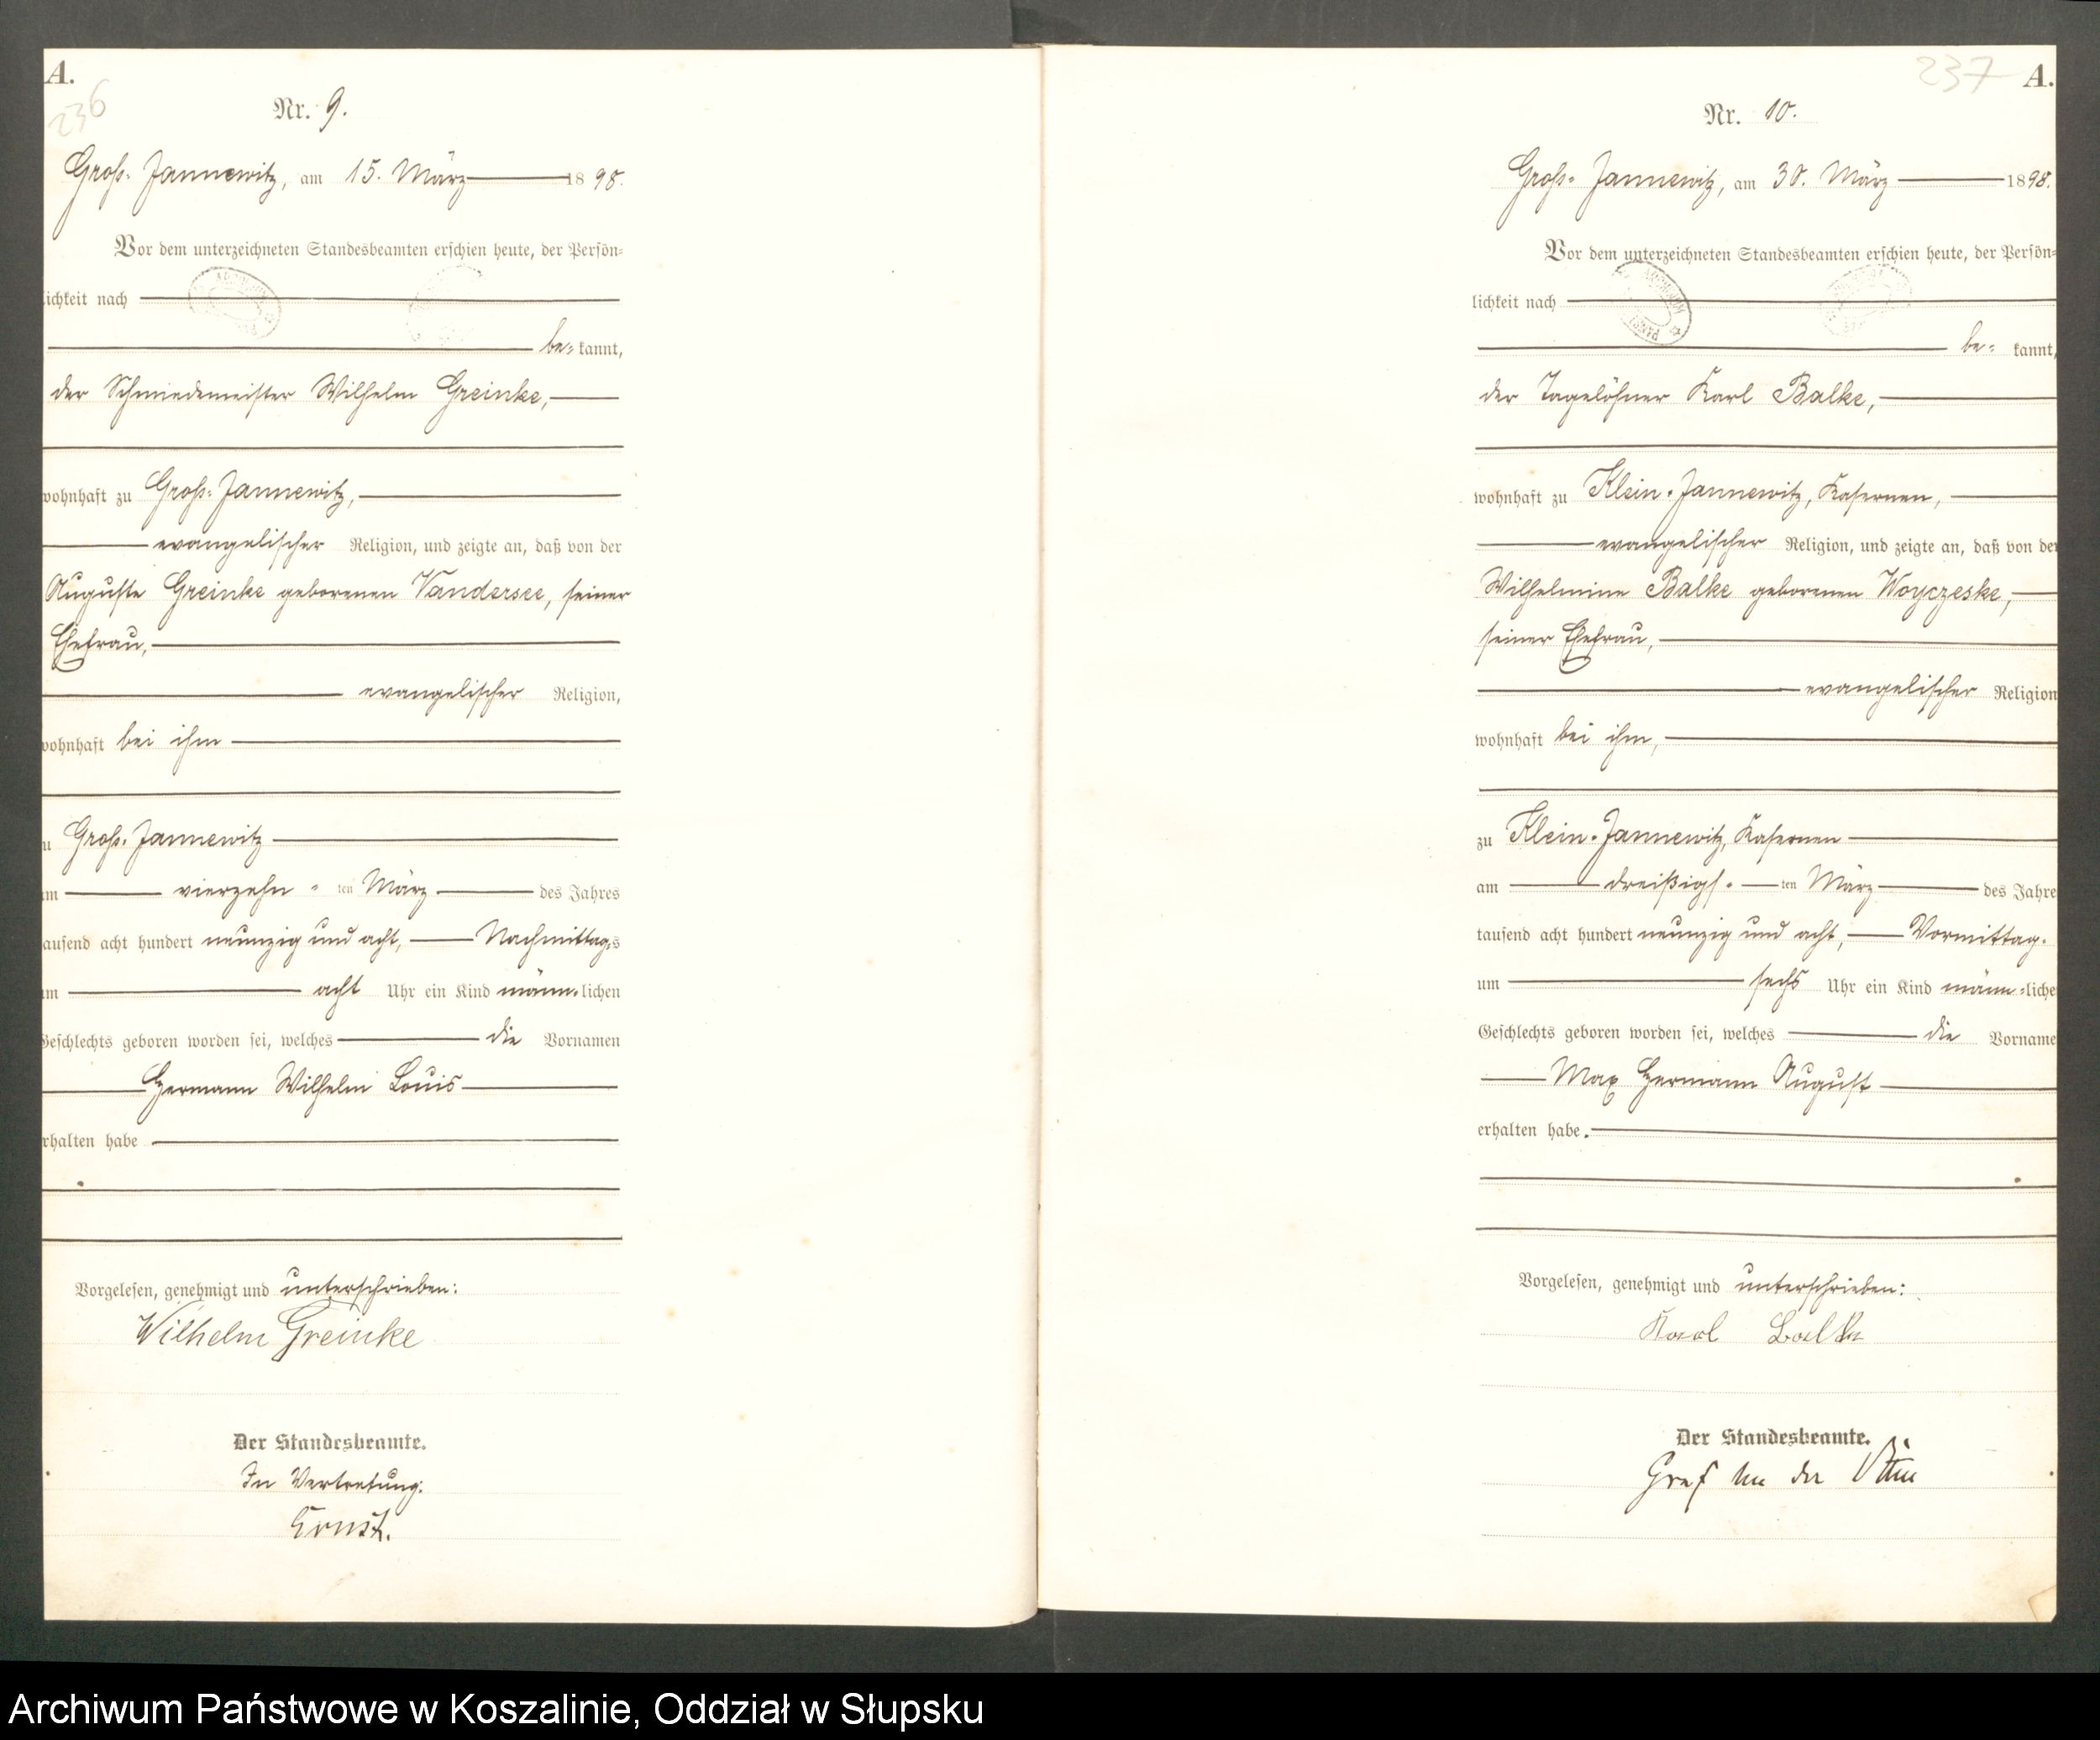 A.
236
Nr. 9.
Groß-Jannewitz, am 15. März 1898.
Vor dem unterzeichneten Standesbeamten erschien heute, der Persön-
lichkeit nach
be- kannt,
der Schmiedemeister Wilhelm Greinke,
wohnhaft zu Groß-Jannewitz,
evangelischer Religion, und zeigte an, daß von der
Auguste Greinke geborenen Vandersee, seiner
Ehefrau,
evangelischer Religion,
wohnhaft bei ihm
zu Groß-Jannewitz
am vierzehn - ten März des Jahres
tausend acht hundert neunzig und acht, Nachmittags
um acht Uhr ein Kind männ-lichen
Geschlechts geboren worden sei, welches die Vornamen
Hermann Wilhelm Louis
erhalten habe
Vorgelesen, genehmigt und unterschrieben:
Wilhelm Greinke
Der Standesbeamte.
In Vertretung:
Ernst.
237 A.
Nr. 10.
Groß-Jannewitz, am 30. März 1898.
Vor dem unterzeichneten Standesbeamten erschien heute, der Persön-
lichkeit nach
be- kannt,
der Tagelöhner Karl Balke,
wohnhaft zu Klein-Jannewitz, Kasernen,
evangelischer Religion, und zeigte an, daß von der
Wilhelmine Balke geborenen Woyczeske,
seiner Ehefrau,
evangelischer Religion
wohnhaft bei ihm,
zu Klein-Jannewitz, Kasernen
am dreißigs- ten März des Jahre
tausend acht hundert neunzig und acht, Vormittag-
um sechs Uhr ein Kind männ-liche
Geschlechts geboren worden sei, welches die Vorname
Max Hermann August
erhalten habe.
Vorgelesen, genehmigt und unterschrieben:
Karl Balke
Der Standesbeamte.
Graf von der
Archiwum Państwowe w Koszalinie, Oddział w Słupsku